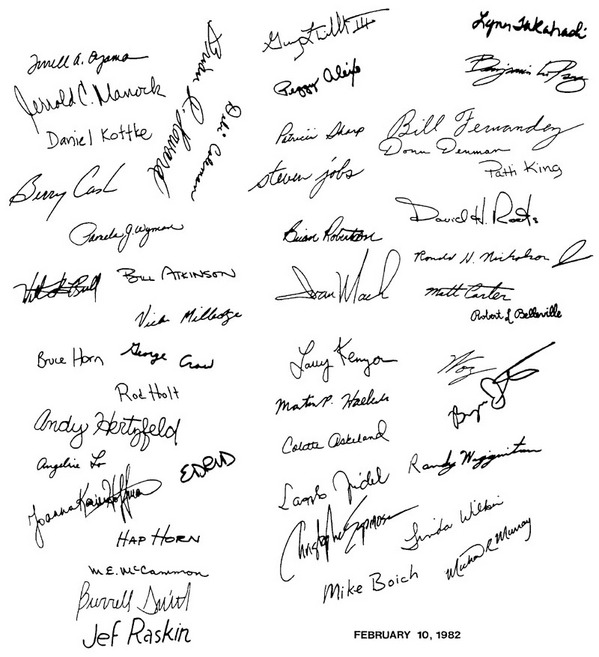 Terrell A. Oyama
Jerrold C. Manock
Daniel Kottke
Brian R. Howard
Debi Coleman
Berry Cash
Pamela G. Wyman
Bill Atkinson
Vicki Milledge
Bruce Horn
George Crow
Rod Holt
Andy Hertzfeld
Angeline Lo
EDRUD
Joanna Karine Hoffman
Hap Horn
M.E. McCammon
Burrell Smith
Jef Raskin
III
Peggy Alexio
Patricia Sharp
steven jobs
Brian Robertson
Larry Kenyon
Martin P. Haeberli
Colette Askeland
Mike Boich
Lynn Takahashi
Benjamin
Bill Fernandez
Donn Denman
Patti King
David H. Roots
Ronald H. Nicholson Jr
Matt Carter
Robert L Belleville
Woz
Randy Wigginton
Linda Wilkin
Michael R Murray
FEBRUARY 10, 1982